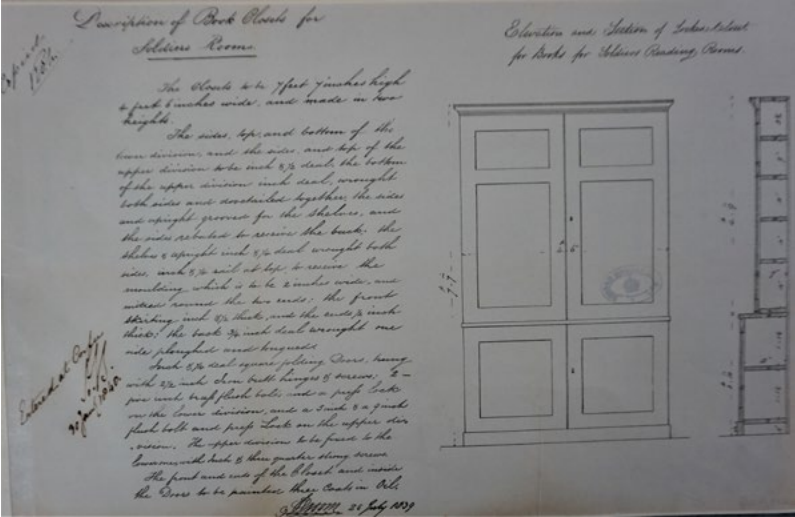 Description of Book Closets for
Soldiers Rooms.
Copied
The Closets to be 7 feet 7 inches high
4 feet 6 inches wide, and made in two
heights.
The sides, top, and bottom of the
division, and the sides, and top of the
upper division to be inch & ½ deal, the bottom
of the upper division inch deal, wrought
both sides and dovetailed together, the sides
and upright grooved for the shelves, and
the sides rebated to receive the back. the
shelves & upright inch deal wrought both
sides, inch rail at top, to receive the
moulding which is to be 2 inches wide, and
mitred round the two ends; the front
skirting inch thick, and the ends inch
thick; the back ¾ inch deal wrought one
side ploughed and tongued.
Inch deal square folding Doors, hung
with 2½ inch Iron butt hinges & screws; 2 -
inch brass flush bolts and a press lock
on the lower division, and a 3 inch & a 9 inch
flush bolt and press Lock on the upper div
-ision. The upper division to be fixed to the
lower one, with Inch & three quarter strong screws
The front and ends of the Closet and inside
the Doors to be painted three Coats in Oil.
26 July 1839
Entered at
Elevation and Section of
for Books for Soldiers Reading Rooms.
7.7
4.6